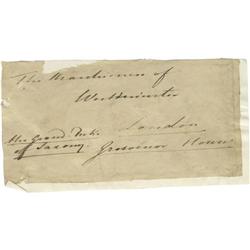 The Marchioness of
Westminster
London
the Grand Duke
of Saxony
Grosvenor House